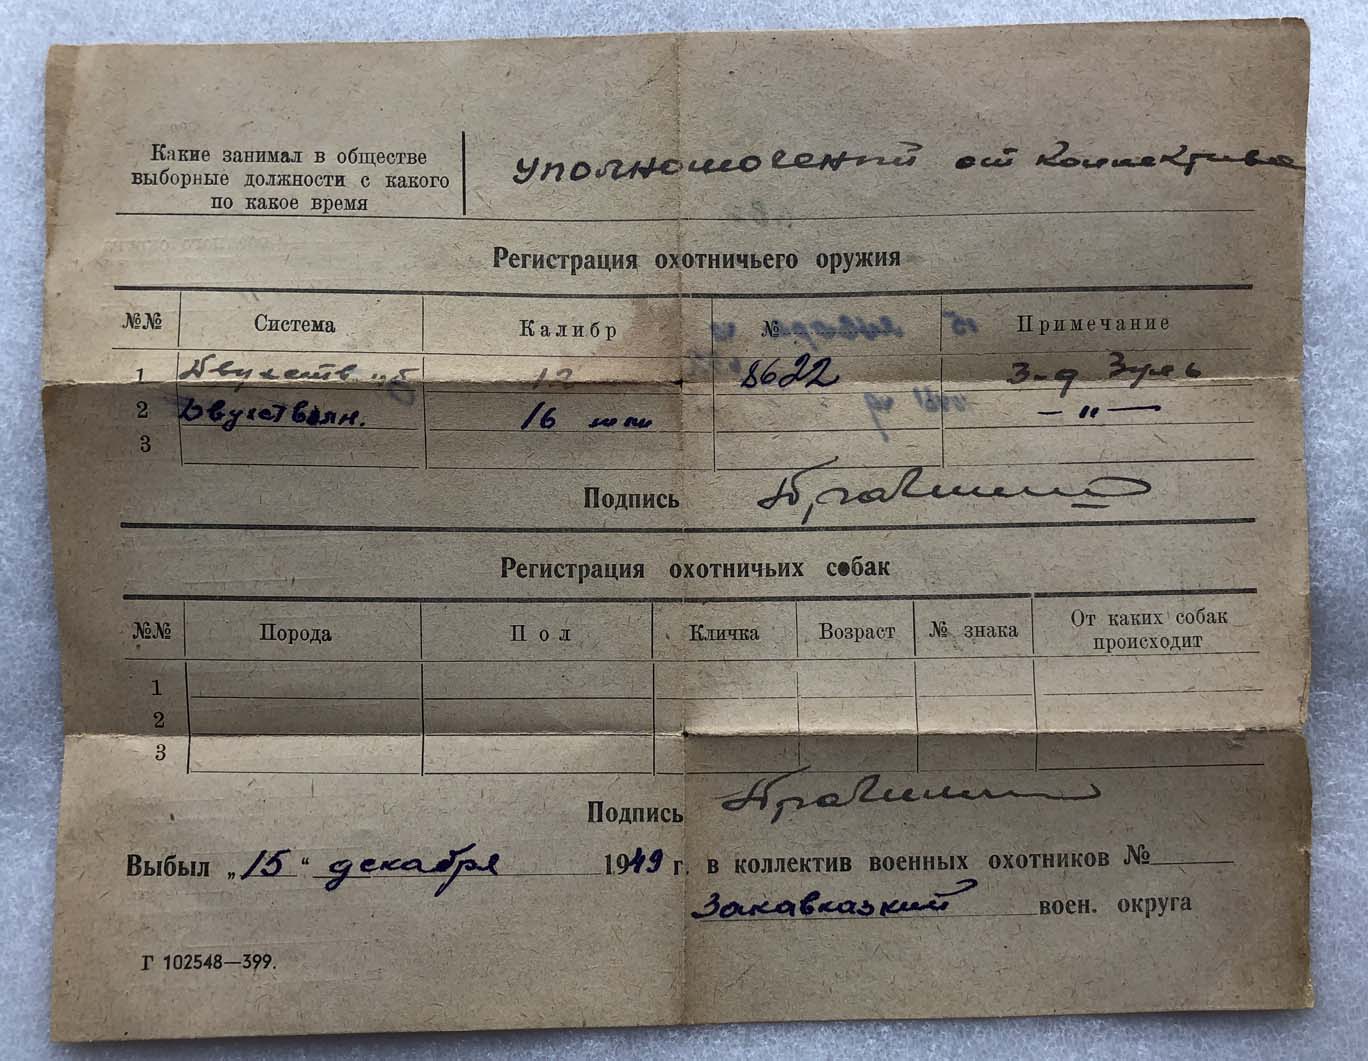 Какие занимал в обществе
выборные должности с какого
по какое время
уполномоченный от коллектива
Регистрация охотничьего оружия
№№ Система Калибр № Примечание
1 12 8622 З-д Зуль
2 Двухствольн. 16 мм —"—
3
Подпись
Регистрация охотничьих собак
№№ Порода Пол Кличка Возраст № знака От каких собак
происходит
1
2
3
Подпись
Выбыл „15“ декабря 1949 г. в коллектив военных охотников №
Закавказкий воен. округа
Г 102548—399.